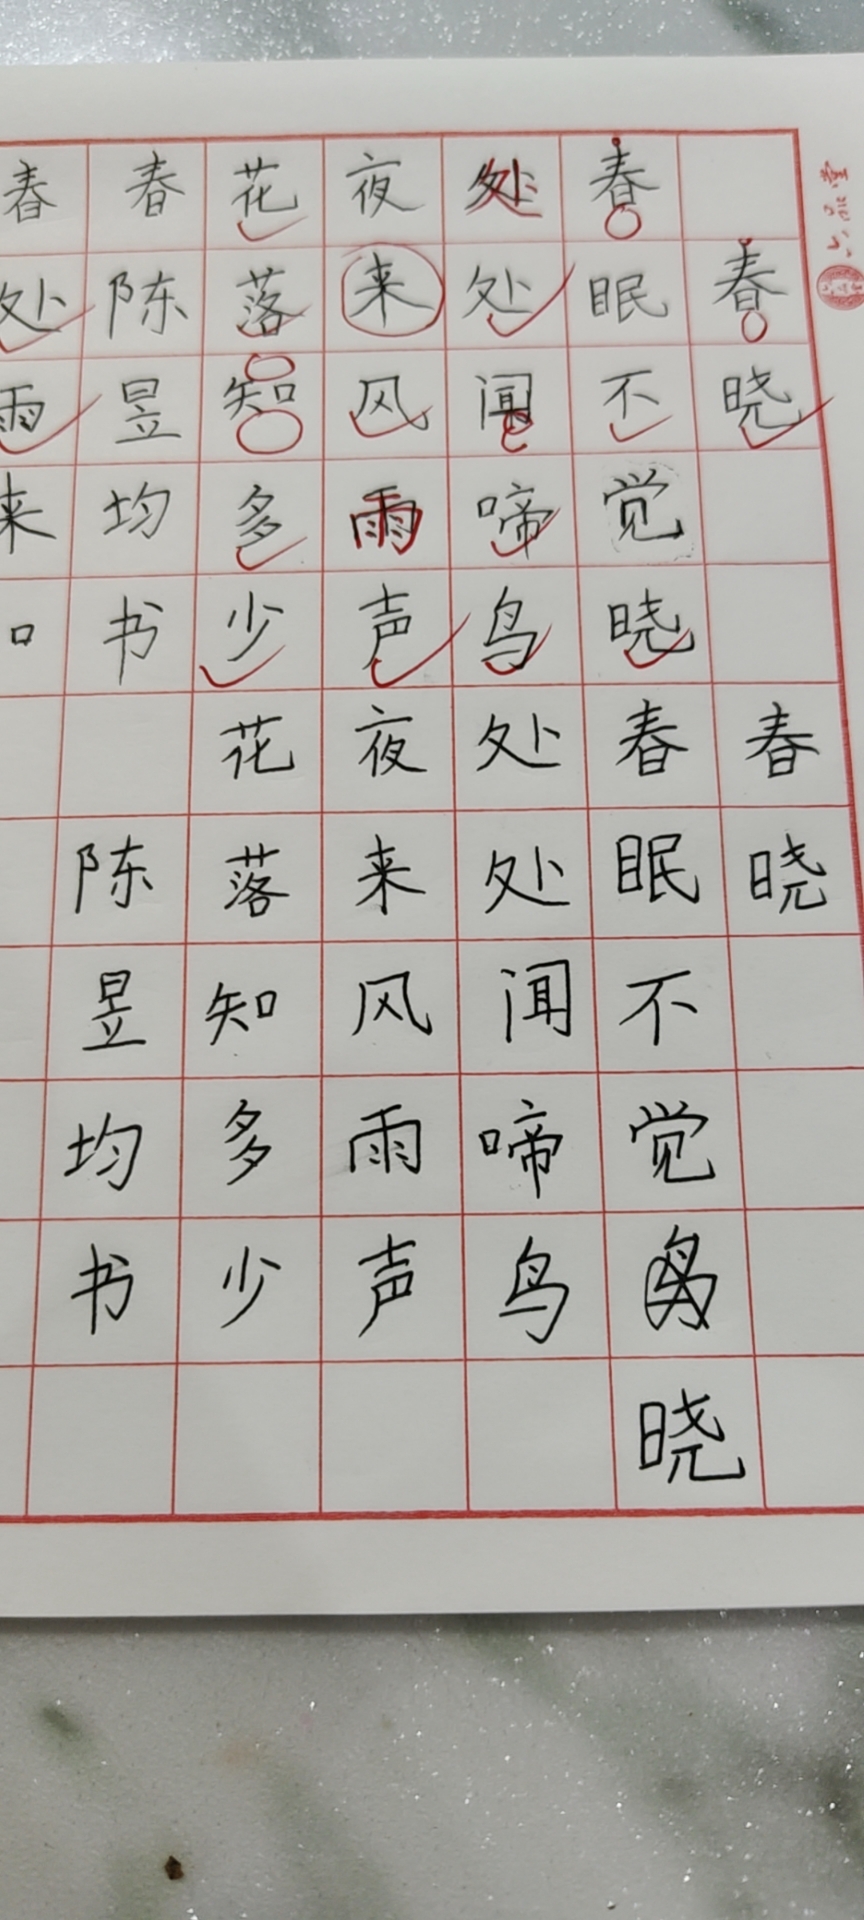 六品堂
春晓
春眠不觉晓
处处闻啼鸟
夜来风雨声
花落知多少
春陈昱均书
春处雨来
春晓
春眠不觉晓
处处闻啼鸟
夜来风雨声
花落知多少
陈昱均书